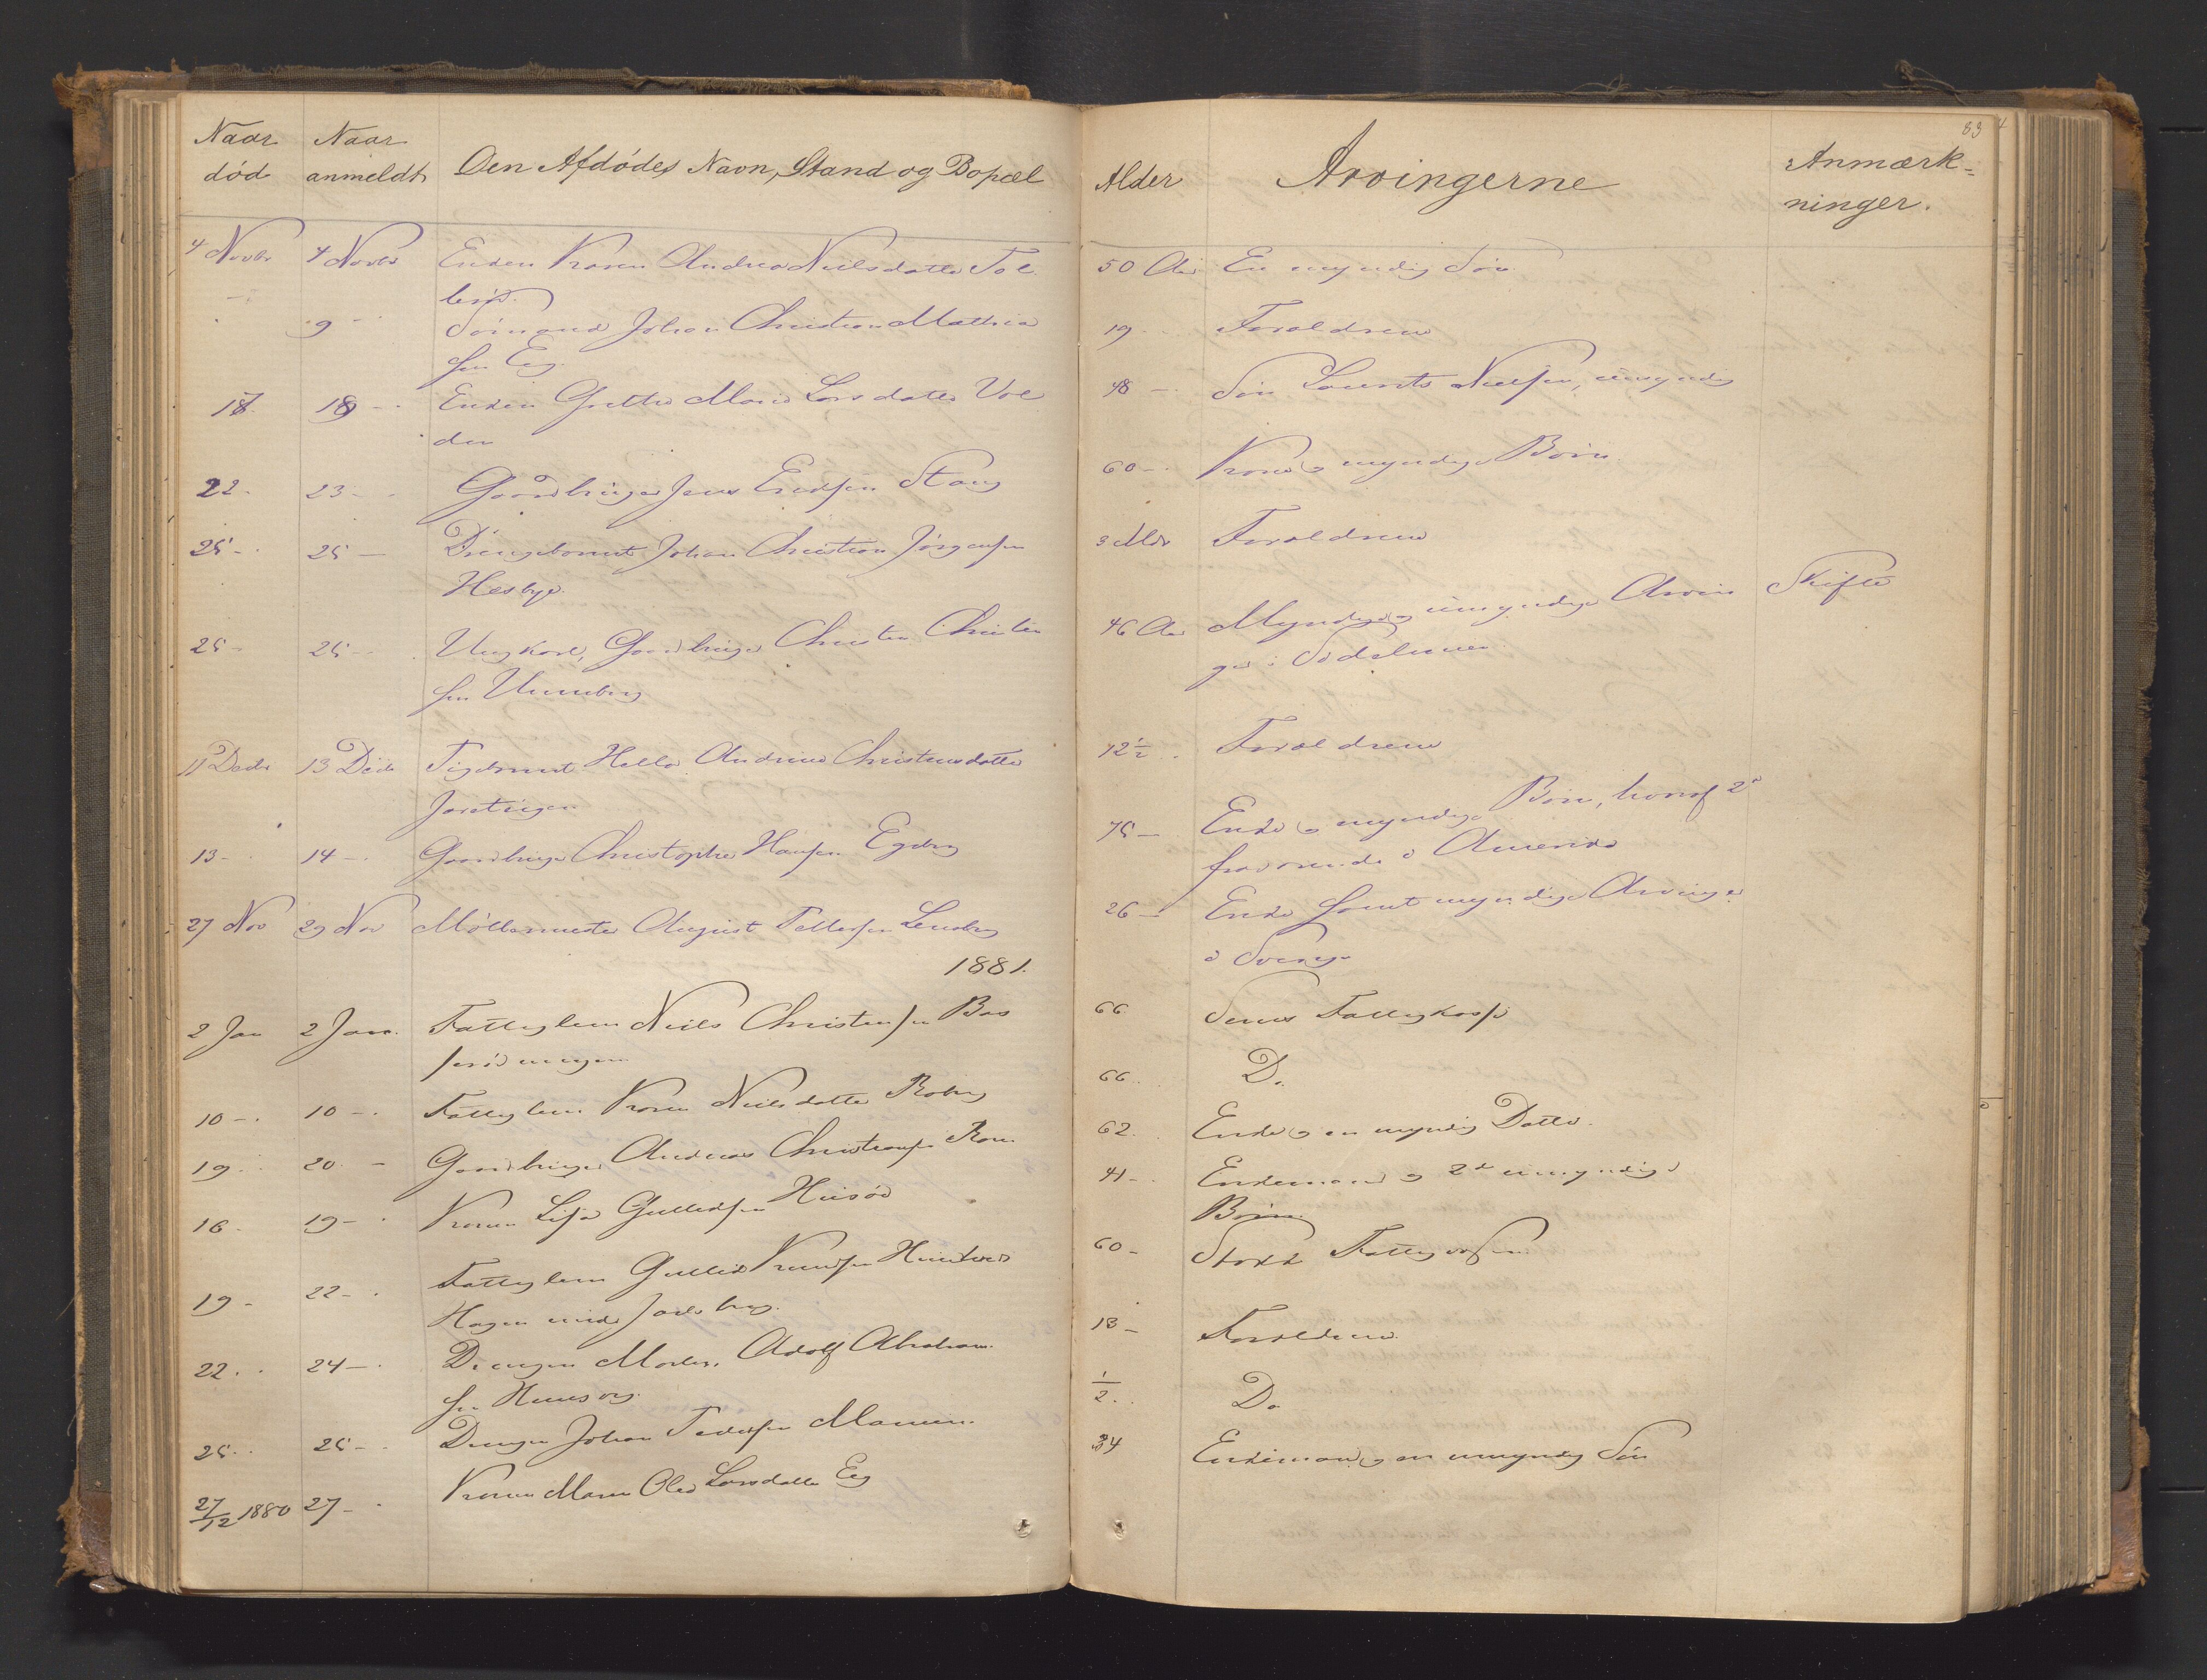 Naar Naar
død anmeldt Den Afdødes Navn, Stand og Bopæl
4 Novbr 4 Novbr Enken Karen Andrea Nielsdatter Sol
lerød.
9 - Sømand Johan Christian Mathia
sen Eeg.
17. 18 - Enken Grethe Marie Larsdatter Vol
den
22. 23 - Gaardbruger Jens Erichsen Stang
25 - 25 - Drengebarnet Johan Christian Jørgensen
Hesbye
25 - 25 - Ungkarl, Gaardbruger Christen Christen
sen Unneberg
11 Decbr 13 Decb Pigebarnet Helle Andrine Christensdatter
13 - 14 - Gaardbruger Christopher Hansen Egeberg
27 Nov 29 Nov Møllermester August Pettersen
1881.
2 Jan 2 Janr. Fattiglem Niels Christensen Bas
10 - 10 - Fattiglem Karen Nielsdatter Roberg
19 20 - Gaardbruger Andreas Christensen
16 - 19 - Konen Lise Gulliksen Husø
19 - 22 - Fattiglem Gullik Knudsen
Hagen under Jarlsberg.
22 24 - Drengen Adolf Abraham
sen
25 25 - Drengen Johan Pedersen
27/12 1880 27 - Konen Maren Olea Larsdatter Eeg
83
Alder Arvingerne Anmærk=
ninger.
50 Aar En myndig Søn
19 Forældrene
48 - Søn Laurits Nielsen, umyndig
60 - Kone & myndige Børn
3 Mdr Forældrene
46 Aar Myndige & umyndige Arvin Skifte
ger i Sidelinien
12½ Forældrene
75 - Enke & myndige Børn, hvoraf 2de
fraværende i Amerika
26 - Enke samt myndige Arvinger
i Sverige
66 Sems Fattigkasse
66 Do
62 Enke & en myndig Datter.
41 - Enkemand & 2de umyndige
Børn
60 - Stokke Fattigvæsen
13 - Forældrene
½ Do
34 Enkemand & en umyndig Søn